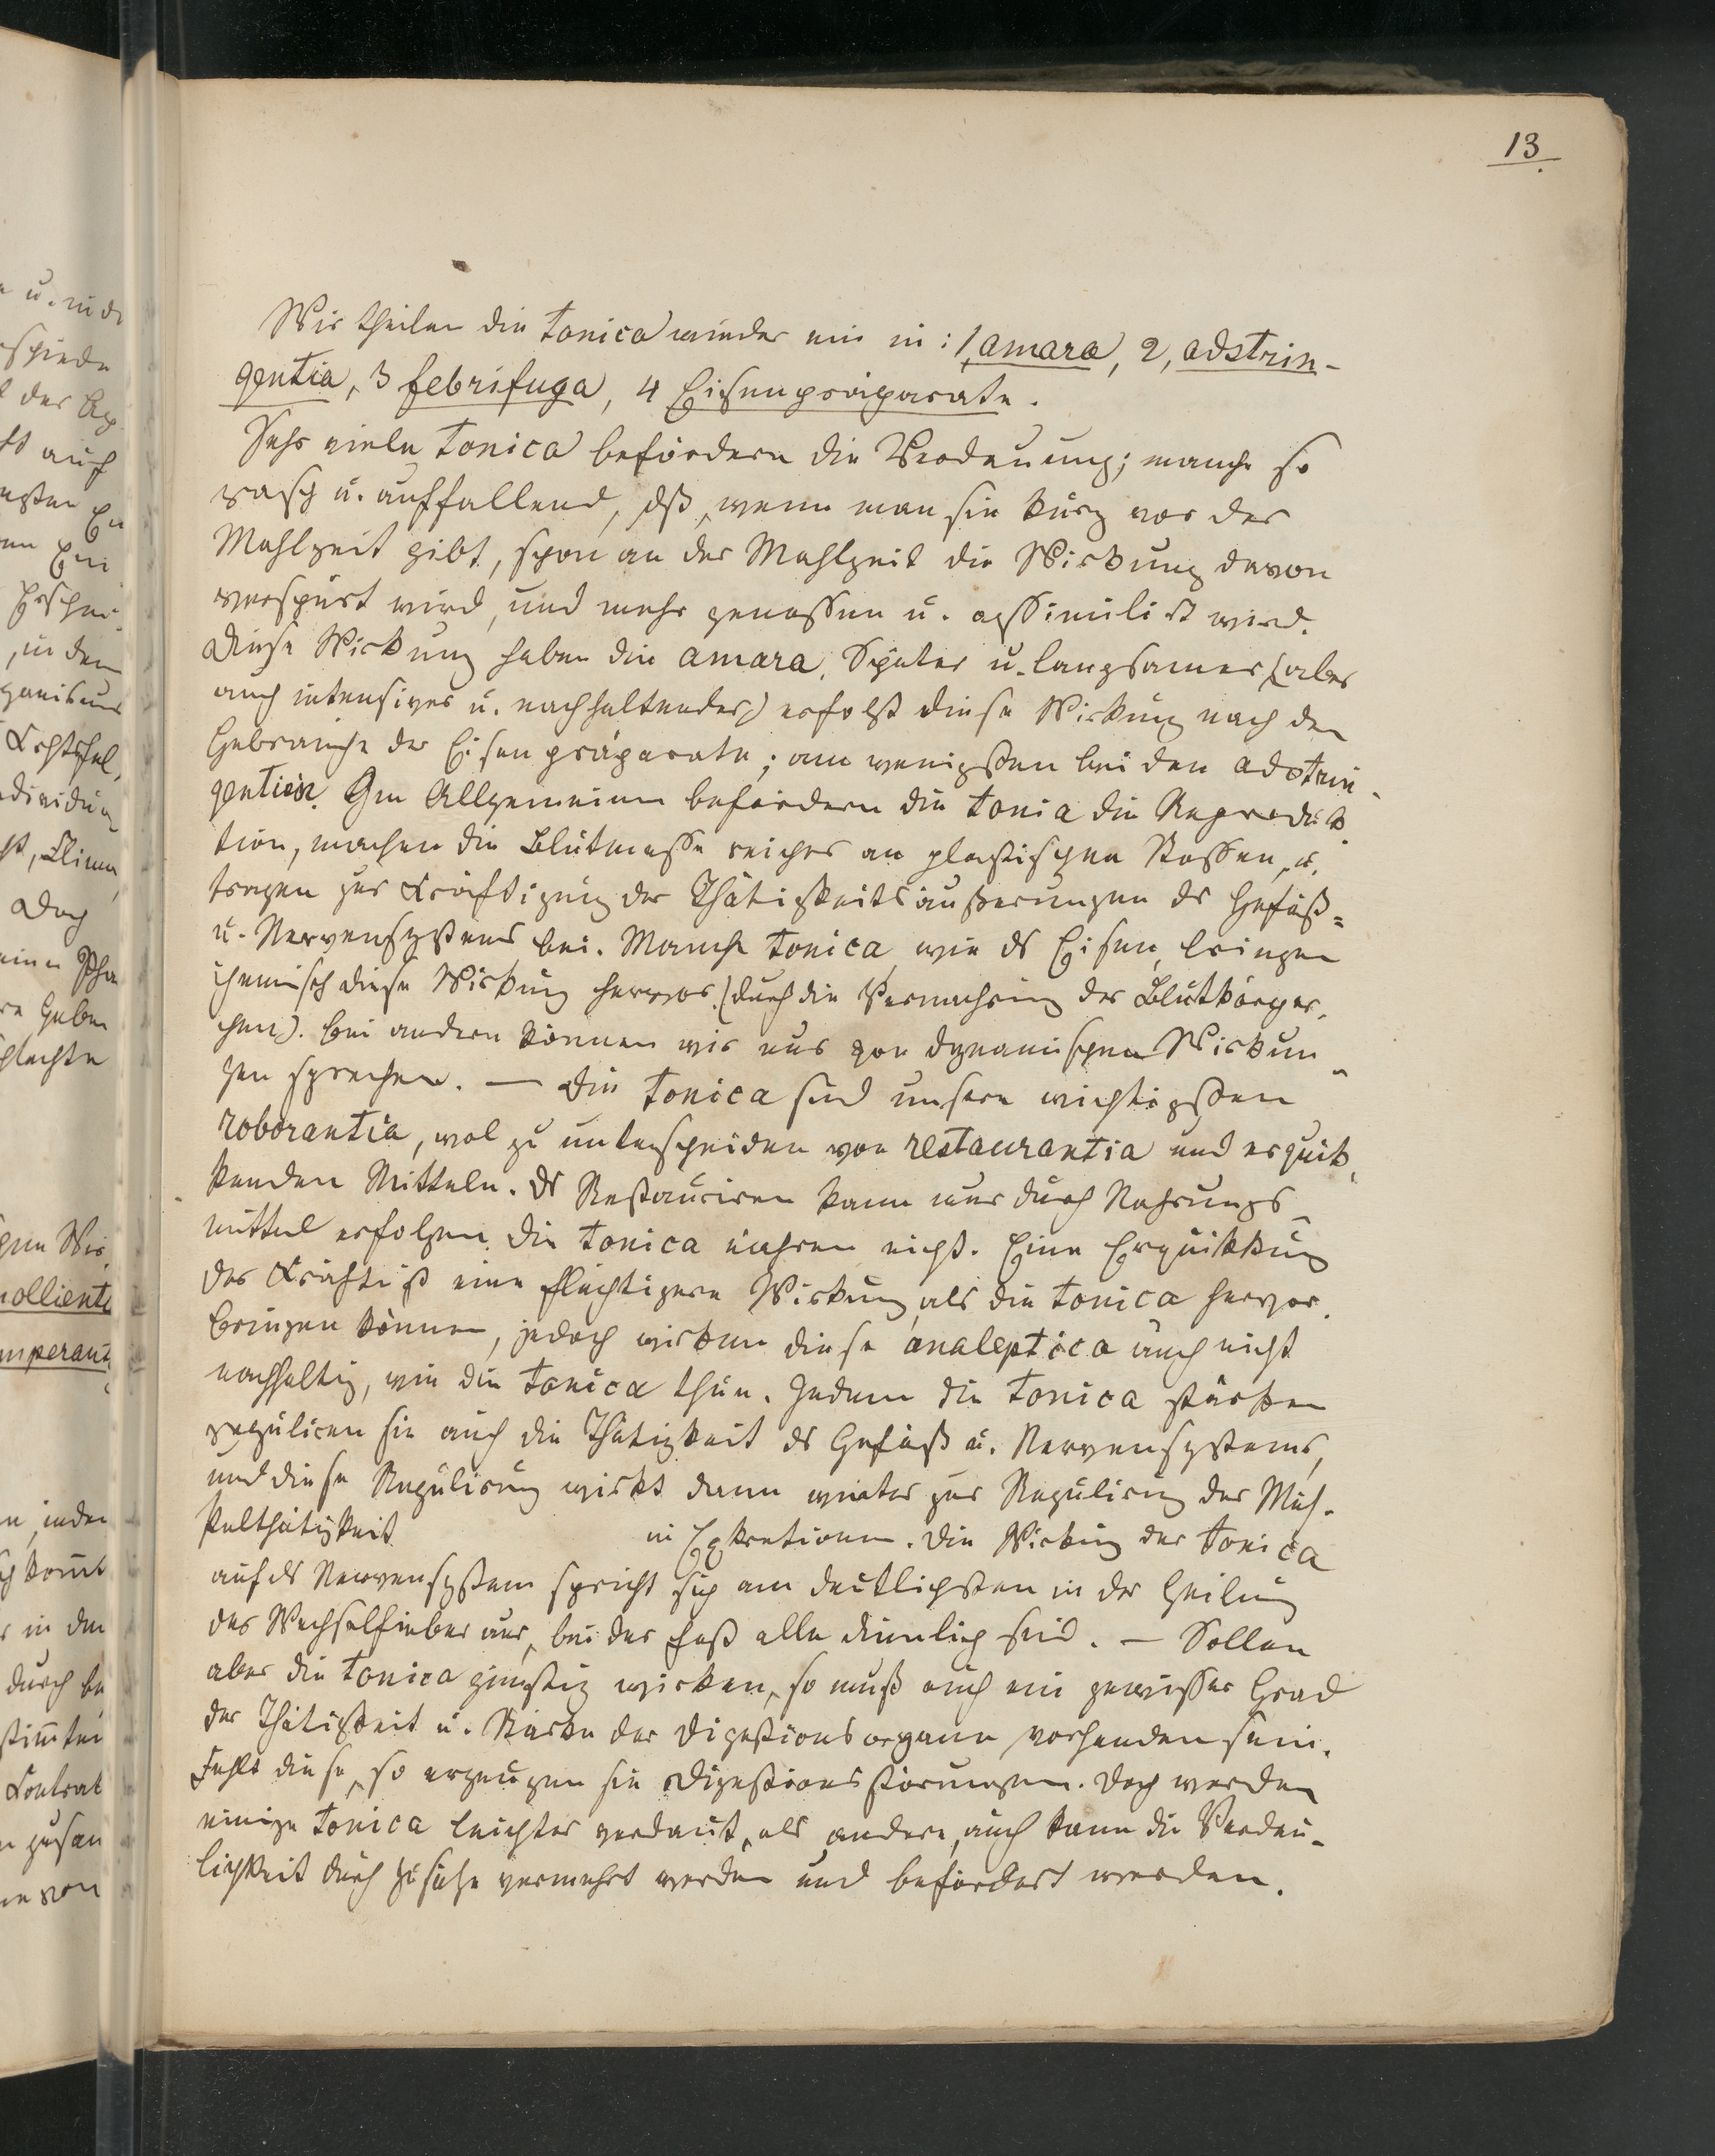 13.
Wir theilen die tonica wieder ein in: 1, amara, 2, adstrin-
gentia, 3 febrifuga, 4 Eisenpräparate.
Sehr viele tonica befördern die Verdauung; manche so
rasch u. auffallend, dß, wenn man sie kurz vor der
Mahlzeit gibt, schon an der Mahlzeit die Wirkung davon
verspürt wird, und mehr genossen u. assimilirt wird.
Diese Wirkung haben die amara. Später u. langsamer (aber
auch intensiver u. nachhaltender) erfolgt diese Wirkung nach dem
Gebrauche der Eisenpräparate; am wenigsten bei den adstrin-
gentien. Im Allgemeinen befördern die tonia die Reproduk-
tion, machen die Blutmasse reicher an plastischen Stoffen, u.
tragen zur Kräftigung der Thätigkeitsäußerungen ds Gefäß=
u. Nervensystems bei. Manche tonica, wie ds Eisen, bringen
chemisch diese Wirkung hervor (durch die Vermehrung der Blutkörper-
chen). Bei andern können wir nur von dynamischen Wirkun-
gen sprechen. — Die tonica sind unsere wichtigsten
roborantia, wol zu unterscheiden von restaurantia und erquik-
kenden Mitteln. Ds Restauriren kann nur durch Nahrungs-
mittel erfolgen. Die tonica nähren nicht. Eine Erquikkung
der Kräfte ist eine flüchtigere Wirkung, als die tonica hervor-
bringen können, jedoch wirken diese analeptica auch nicht
nachhaltig, wie die tonica thun. Indem die tonica stärken
reguliren sie auch die Thätigkeit ds Gefäß u. Nervensystems,
und diese Regulirung wirkt dann weiter zur Regulirung der Mus-
kelthätigkeit in Exkretionen. Die Wirkung der tonica
auf ds Nervensystem spricht sich am deutlichsten in der Heilung
des Wechselfieber aus, bei der fast alle dienlich sind. — Sollen
aber die tonica günstig wirken, so muß auch ein gewisser Grad
der Thätigkeit u. Stärke der Digestionsorgane vorhanden sein.
Fehlt diese, so erzeugen sie Digestionsstörungen. Doch werden
einige tonica leichter verdaut, als andere, auch kann die Verdau-
lichkeit durch Zusätze vermehrt werden und befördert werden.